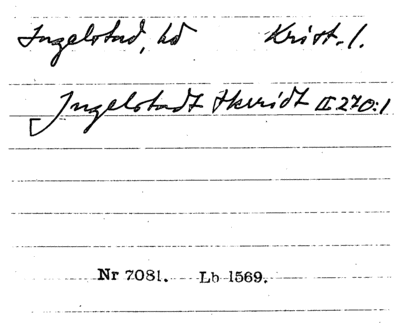 Ingelstad, hd Krist. l.
Ingelstadt Herridt II 270:1
Nr 7081. Lb 1569.